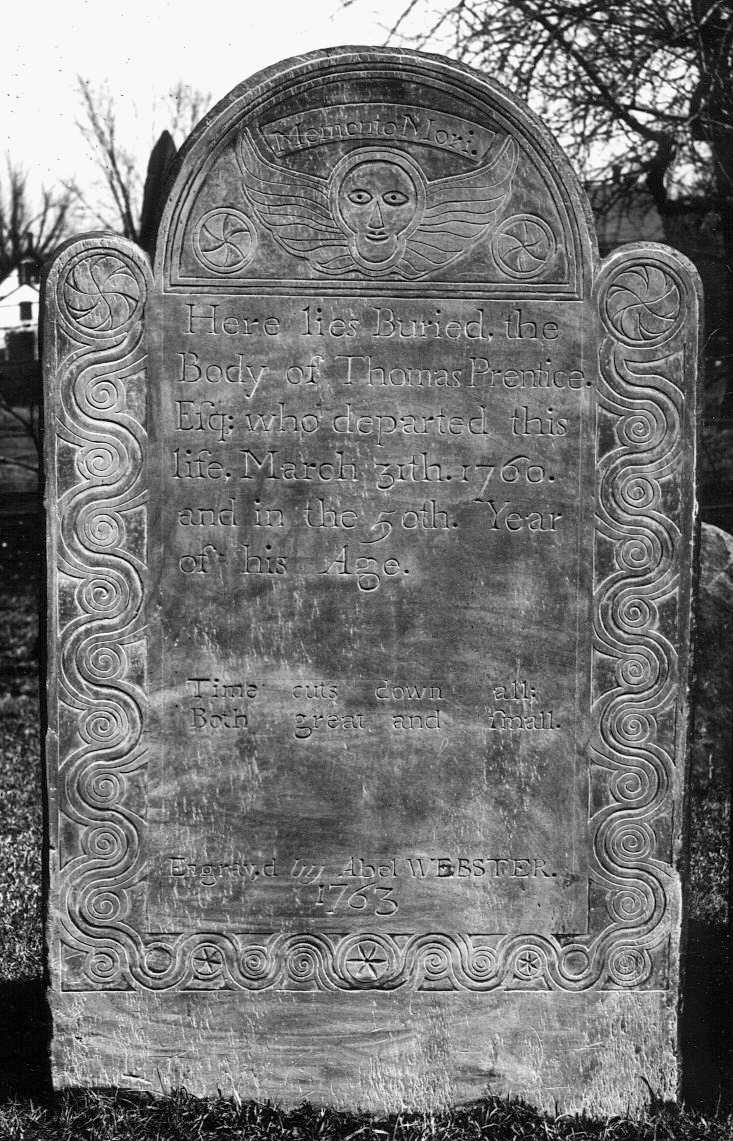 Memento Mori.
Here lies Buried, the
Body of Thomas Prentice.
Eſq: who departed this
life, March 31th. 1760.
and in the 50th. Year
of his Age.
Time cuts down all;
Both great and ſmall.
Engrav,d by Abel WEBSTER.
1763